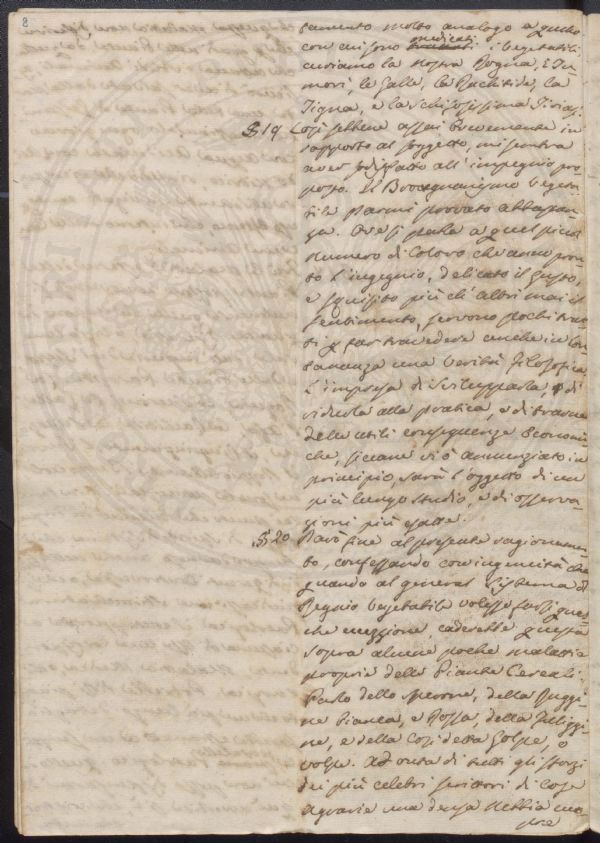 8
samento molto analogo a quello
con cui sono medicati i vegetabili
curiamo la nostra Rogna, i Tu-
mori, le Galle, la Rachitide, la
Tigna, e la schifosissima
§ 19 Così sebbene assai brevemente in
rapporto al soggetto, mi sembra
aver soddisfatto all'impegno pro-
posto. Il vegeta-
bile parmi provato abbastan-
za. Ove si parla a quel picciol
numero di coloro che anno pron-
to l'ingegnio, delicato il gusto,
e squisito più ch'altri mai il
sentimento, servono pochi trat-
ti p far travedere anche in lon-
tananza una verità filosofica
L'impresa di svilupparla, di
ridurla alla pratica, e di trarne
delle utili conseguenze Economi-
che, siccome si è annunziato in
principio, sarà l'oggetto di un
più lungo studio, e di osserva-
zioni più esatte.
§ 20 Darò fine al presente ragionamen-
to, confessando con ingenuità che
quando al general sistema del
Regnio vegetabile volesse farsi qual-
che eccezzione, caderebbe questa
sopra alcune poche malattie
proprie delle Piante Cereali.
Parlo dello sperone, della Ruggi-
ne bianca, e Rossa, della filiggi-
ne, e della così detta Golpe, o
volpe. Ad onta di tutti gli sforzi
dei più celebri scrittori di cose
Agrarie una densa nebbia cuo-
pre